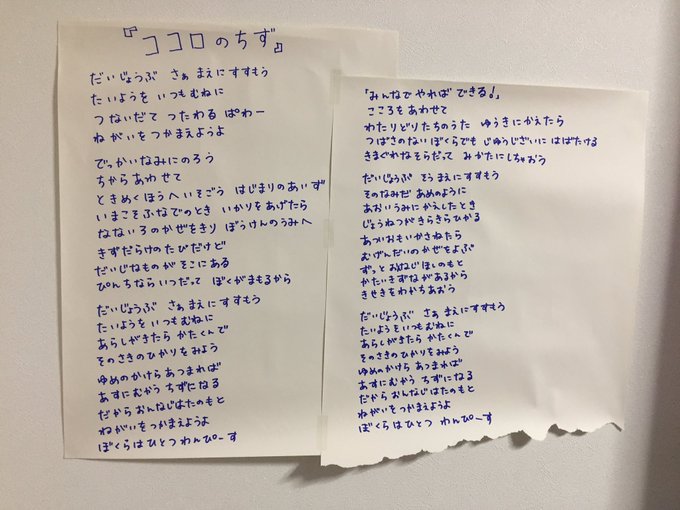 『ココロのちず』
だいじょうぶ さぁ まえにすすもう
たいようを いつもむねに
つないだて つたわる ぱわー
ねがいをつかまえようよ
でっかいなみにのろう
ちからあわせて
ときめくほうへいそごう はじまりのあいず
いまこそふなでのとき いかりをあげたら
なないろのかぜをきり ぼうけんのうみへ
きずだらけのたびだけど
だいじなものがそこにある
ぴんちなら いつだって ぼくがまもるから
だいじょうぶ さぁ まえにすすもう
たいようを いつもむねに
あらしがきたら かたくんで
そのさきのひかりをみよう
ゆめのかけら あつまれば
あすにむかう ちずになる
だから おんなじはたのもと
ねがいをつかまえようよ
ぼくらはひとつ わんぴーす
「みんなでやれば できる!」
こころをあわせて
わたりどりたちのうた ゆうきにかえたら
つばさのない ぼくらでも じゅうじざいに はばたける
きまぐれなそらだって みかたにしちゃおう
だいじょうぶ そう まえにすすもう
そのなみだ あめのように
あおいうみにかえしたとき
じょうねつがきらきらひかる
あついおもいかさねたら
むげんだいのかぜをよぶ
ずっと おなじ ほしのもと
かたいきずながあるから
きせきをわかちあおう
だいじょうぶ さぁ まえにすすもう
たいようをいつもむねに
あらしがきたら かたくんで
そのさきのひかりをみよう
ゆめのかけら あつまれば
あすにむかう ちずになる
だから おんなじはたのもと
ねがいを つかまえようよ
ぼくらはひとつ わんぴーす